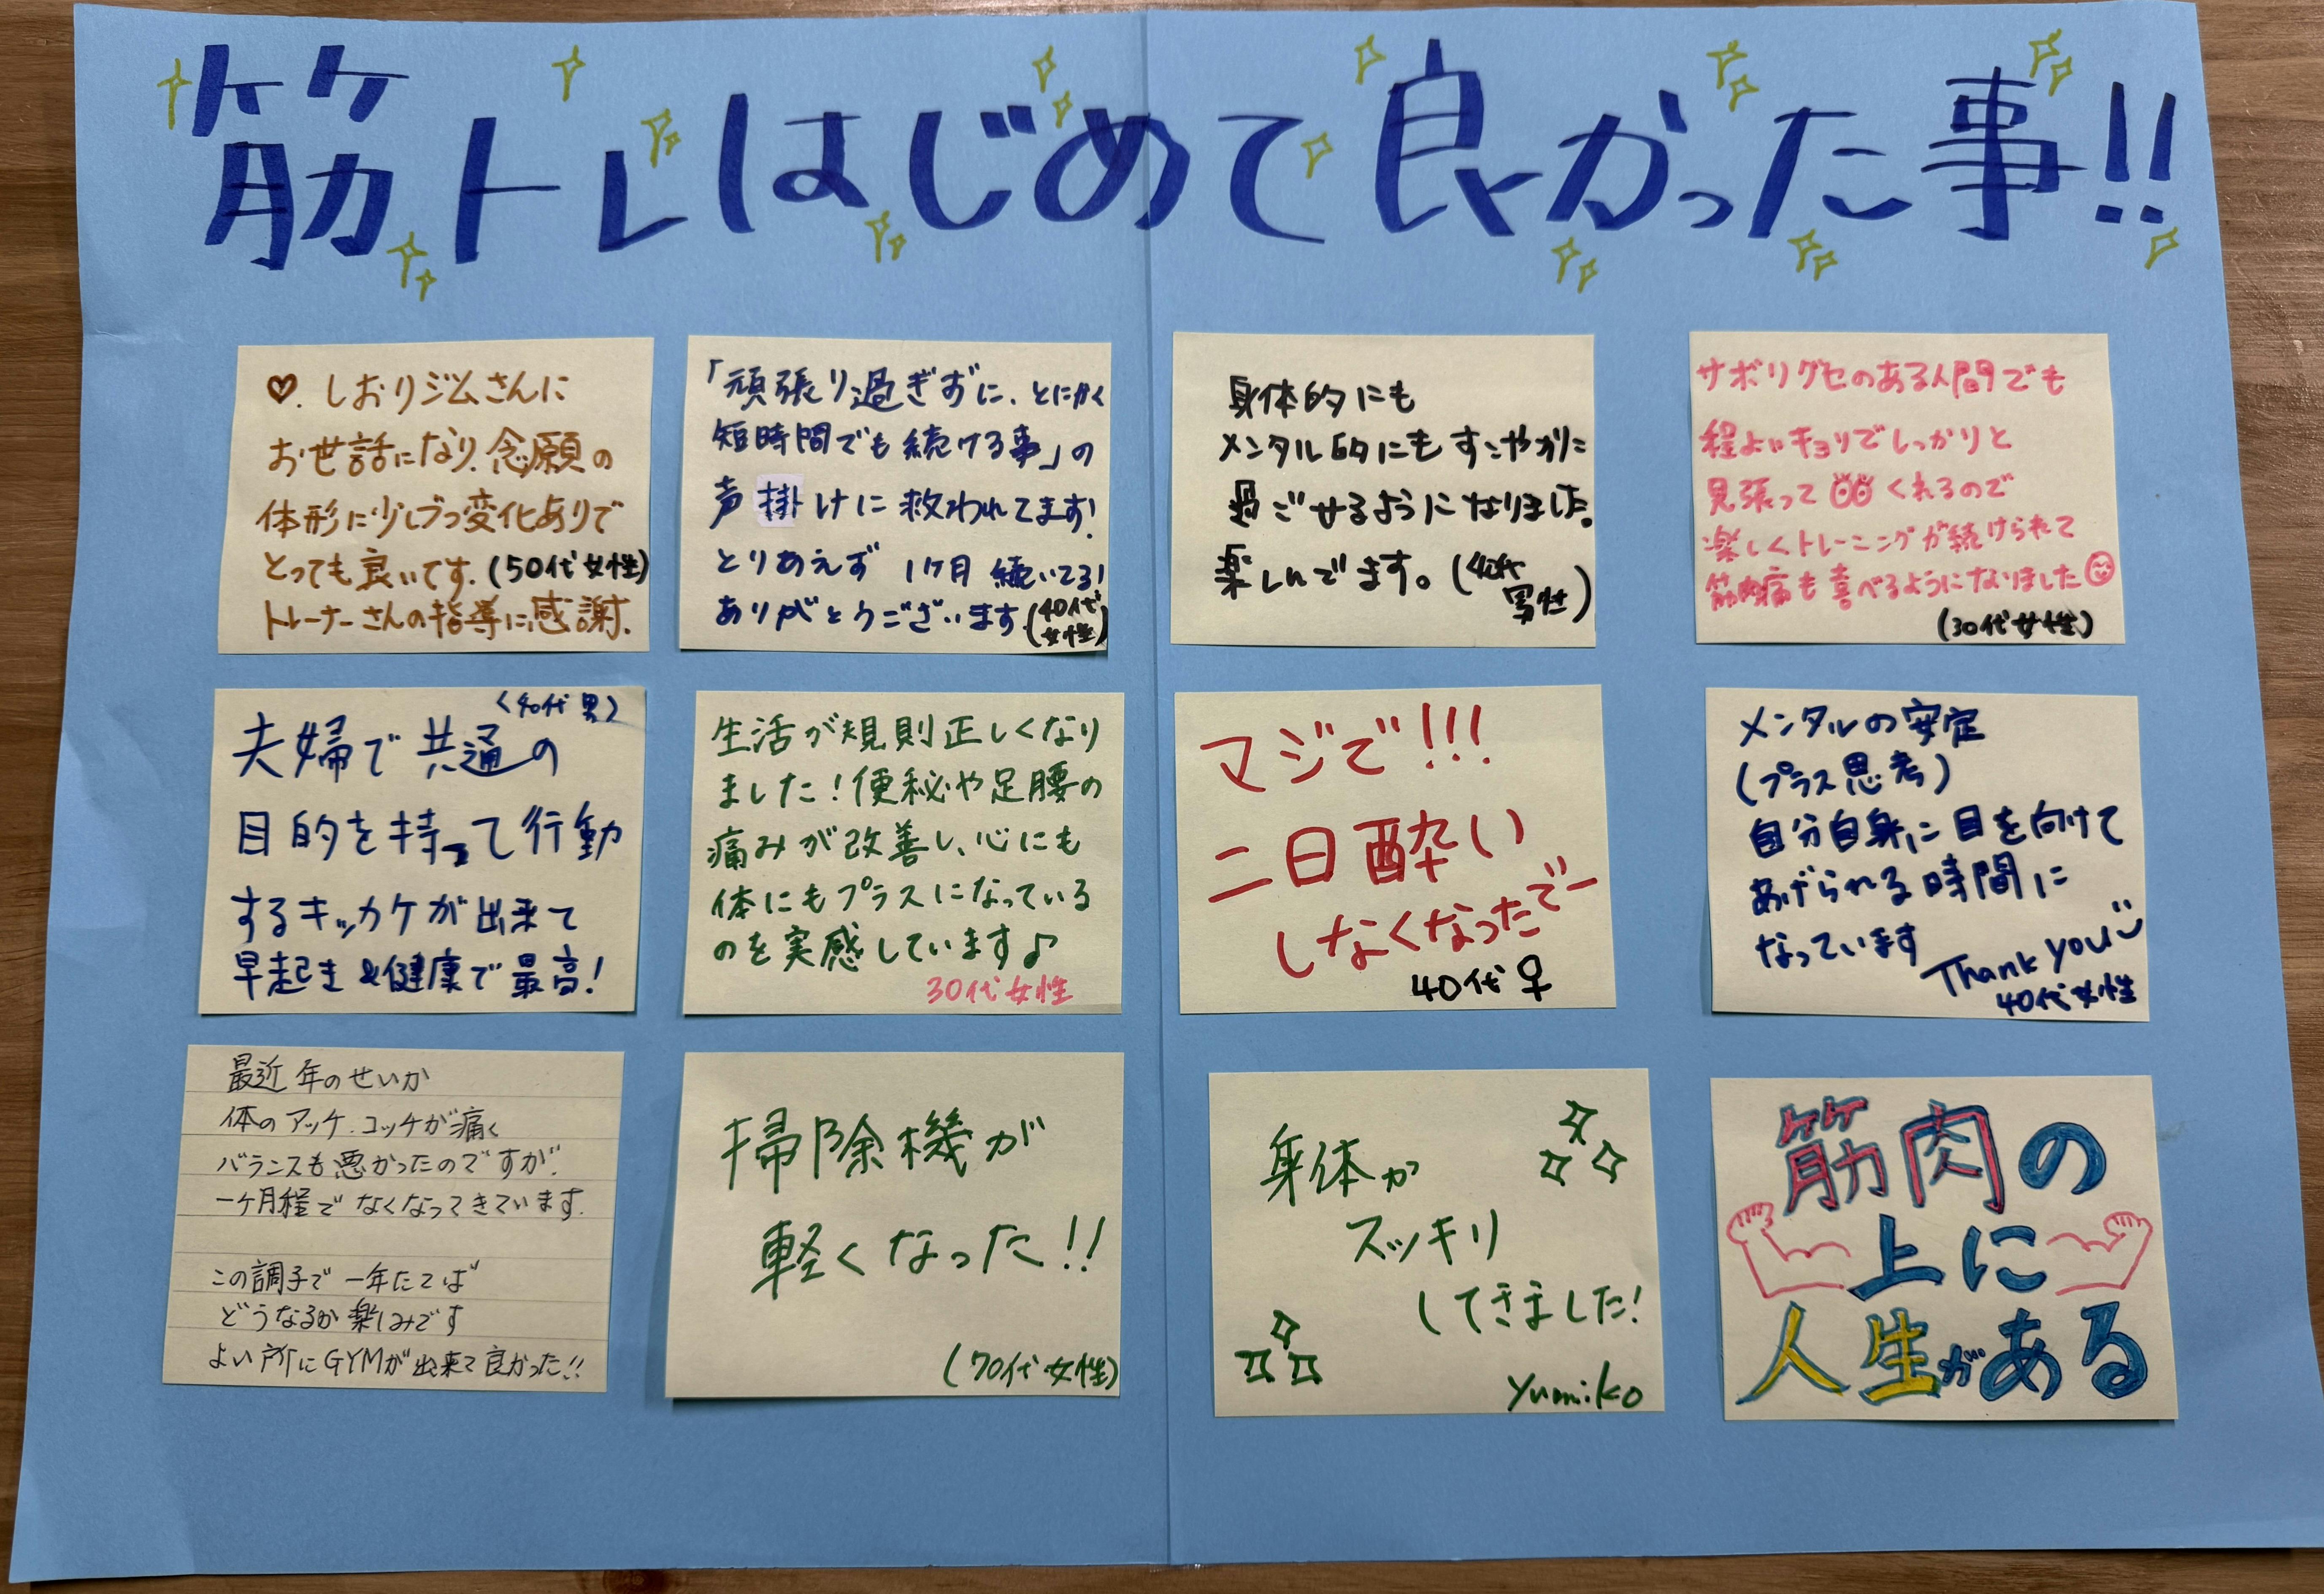 筋トレはじめて良かった事!!
♡.しおりジムさんに
お世話になり、念願の
体形に少しづつ変化ありで
とっても良いです。(50代女性)
トレーナーさんの指導に感謝。
「頑張り過ぎずに、とにかく
短時間でも続ける事」の
声掛けに救われてます!
とりあえず 1ヶ月 続いてる!
ありがとうございます。(40代女性)
身体的にも
メンタル的にもすこやかに
過ごせるようになりました。
楽しんでます。(40代男性)
サボリグセのある人間でも
程よいキョリでしっかりと
見張ってくれるので
楽しくトレーニングが続けられて
筋肉痛も喜べるようになりました
(30代女性)
<40代男>
夫婦で共通の
目的を持って行動
するキッカケが出来て
早起き&健康で最高!
生活が規則正しくなり
ました!便秘や足腰の
痛みが改善し、心にも
体にもプラスになっている
のを実感しています♪
30代女性
マジで!!!
二日酔い
しなくなったでー
40代♀
メンタルの安定
(プラス思考)
自分自身に目を向けて
あげられる時間に
なっています
Thank you
40代女性
最近年のせいか
体のアッケ.コッケが痛く
バランスも悪かったのですが、
一ヶ月程でなくなってきています。
この調子で一年たてば
どうなるか楽しみです
よい所にGYMが出来て良かった!!
掃除機が
軽くなった!!
(70代女性)
身体が
スッキリ
してきました!
Yumiko
筋肉の
上に
人生がある